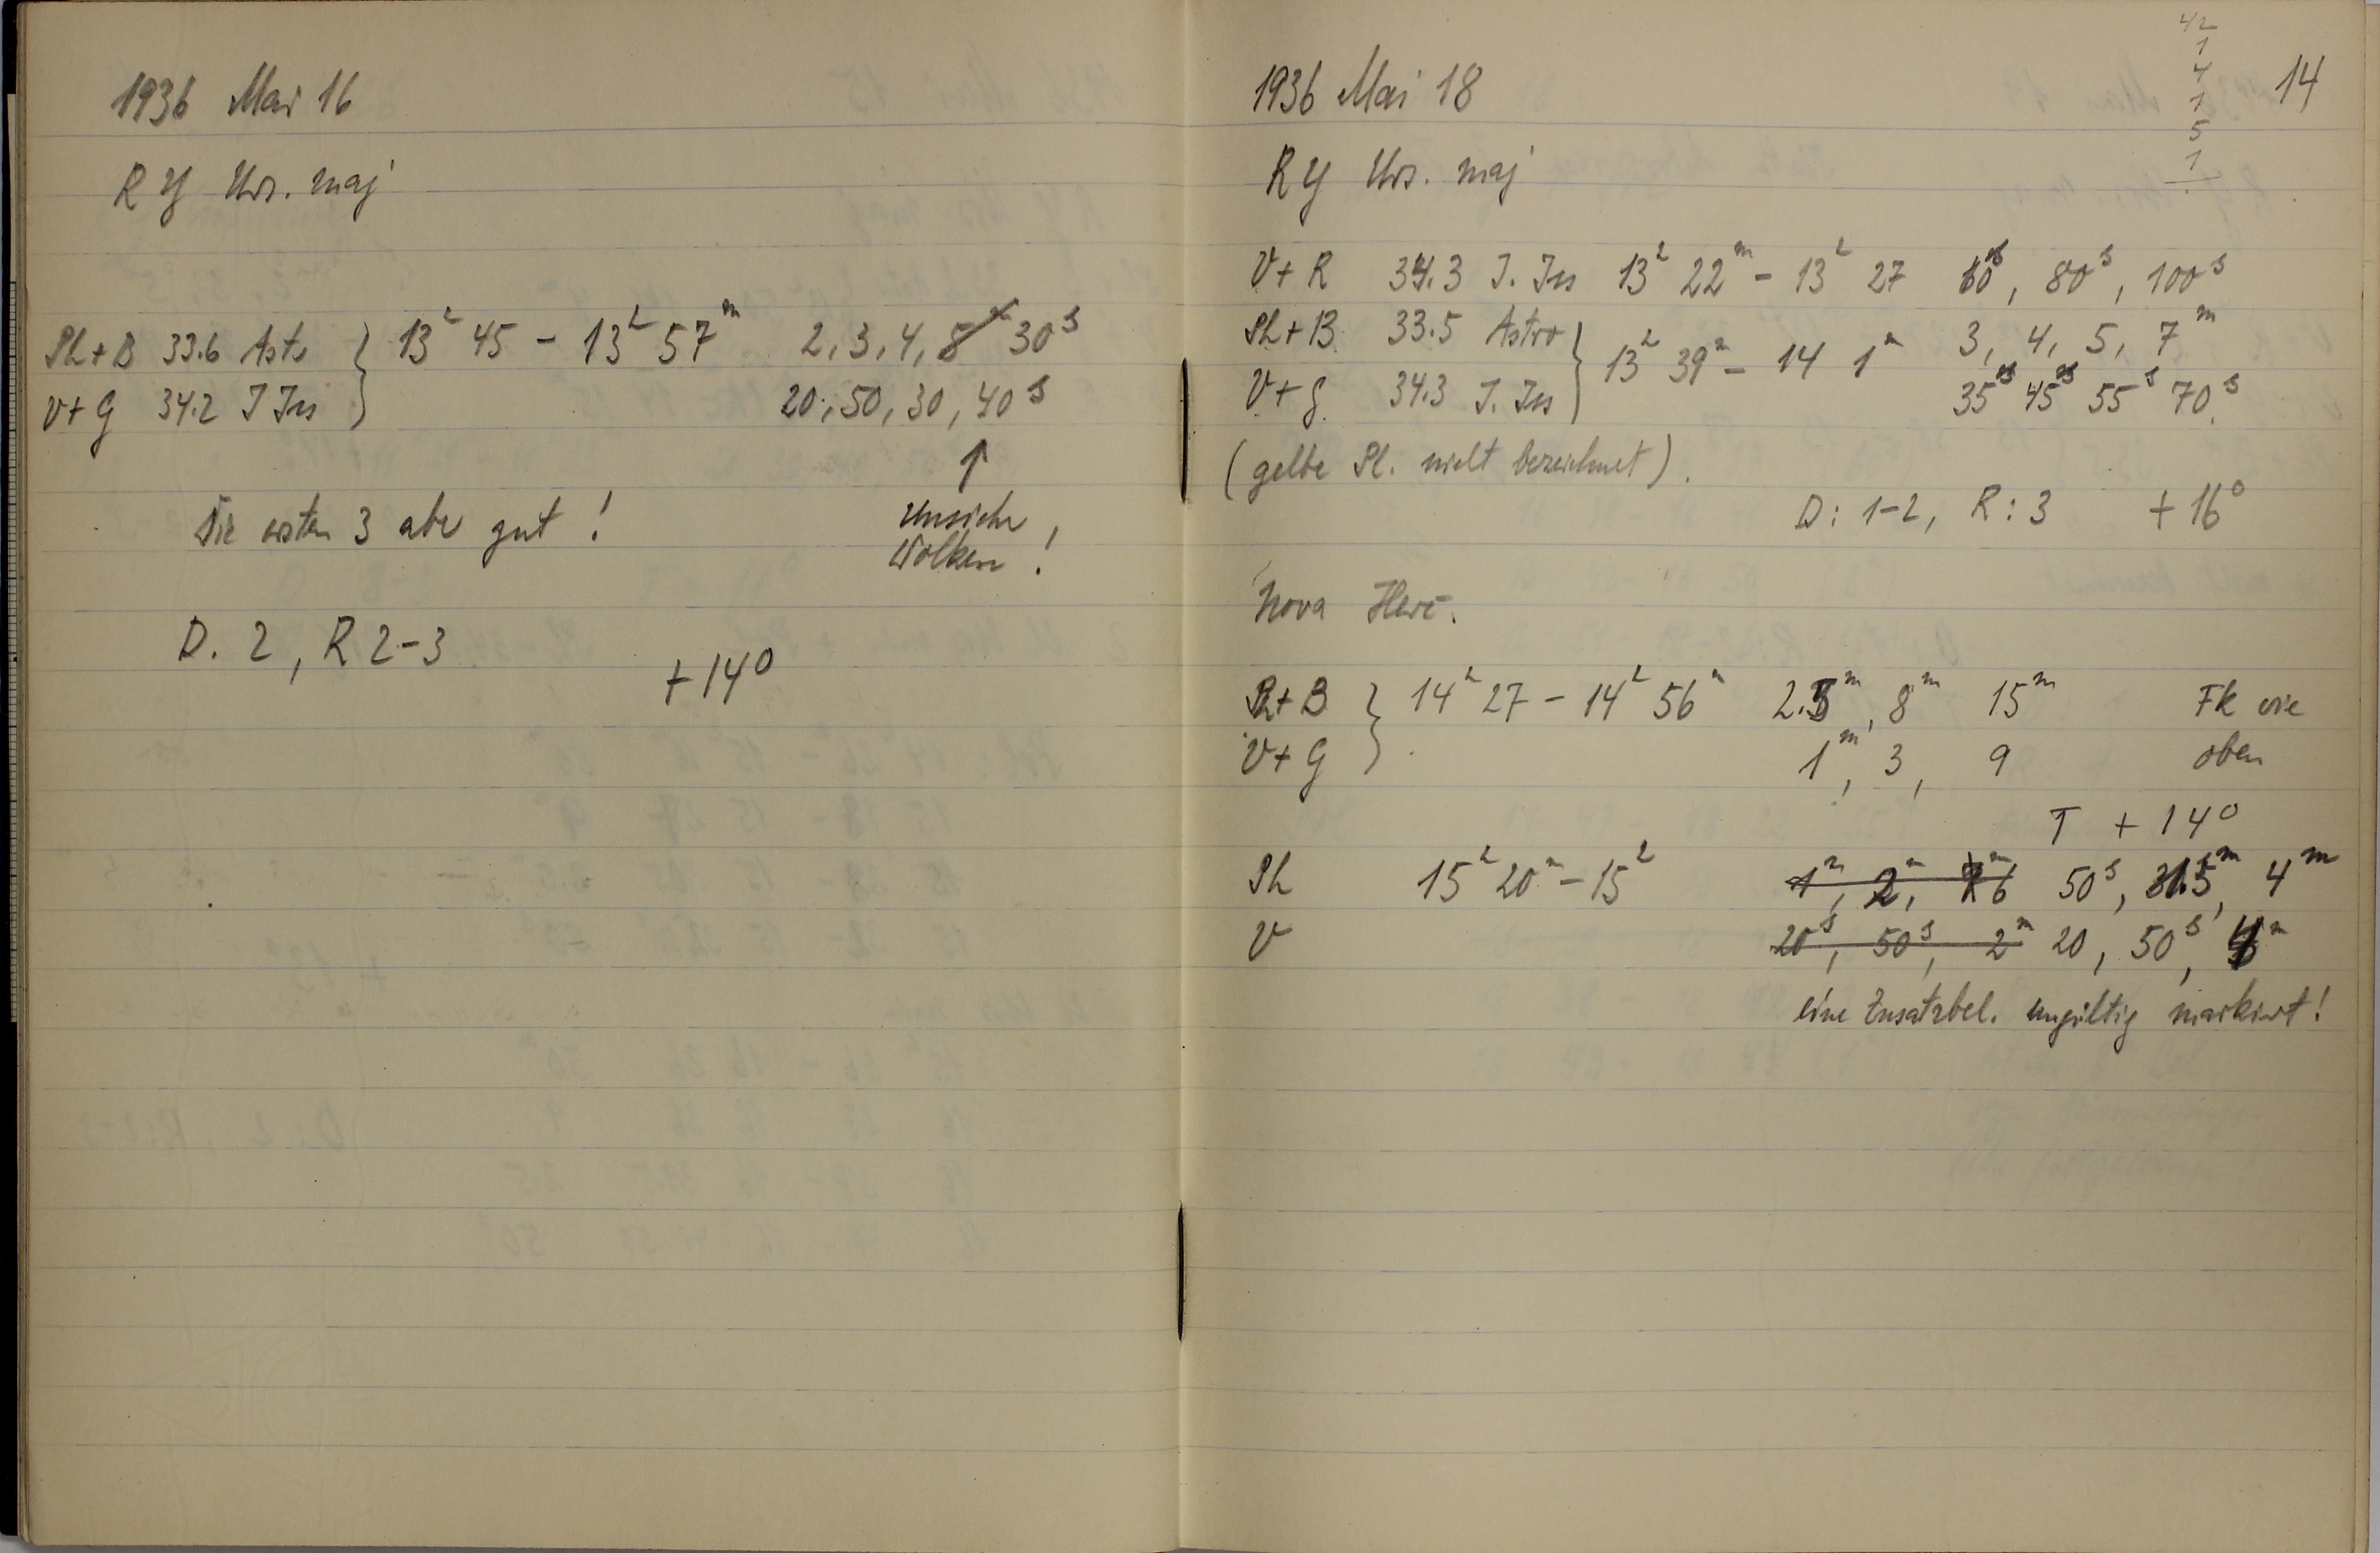 1936 Mai 16
RY Urs. maj
Ph + B 33.6 Astr } 13h 45 - 13h 57m 2, 3, 4, 30s
V + G 34.2 I Iso 20, 50, 30, 40s
↑
Die ersten 3 aber gut! unsicher,
Wolken!
D. 2, R 2-3
+14°
42
1
4
1
5
1
14
1936 Mai 18
RY Urs. maj
V + R 34.3 I. Iso 13h 22m - 13h 27 60s, 80s, 100s
Ph + B 33.5 Astro } 13h 39m - 14 1m 3, 4, 5, 7m
V + G 34.3 I. Iso 35s 45s 55s 70s
(gelbe Pl. nicht bezeichnet).
D: 1-2, R: 3 +16°
Nova Herc.
Ph + B } 14h 27 - 14h 56m 2.5m, 8m 15m Fk wie
V + G 1m, 3, 9 oben
T +14°
Ph 15h 20m - 15h 1m, 2m, 50s, 4m
V 20s, 50s, 2m 20, 50s,
eine Zusatzbel. ungültig markiert!